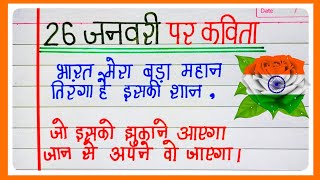 Date /
26 जनवरी पर कविता
भारत मेरा बड़ा महान
तिरंगा है इसकी शान,
जो इसको झुकाने आएगा
जान से अपने वो जाएगा।